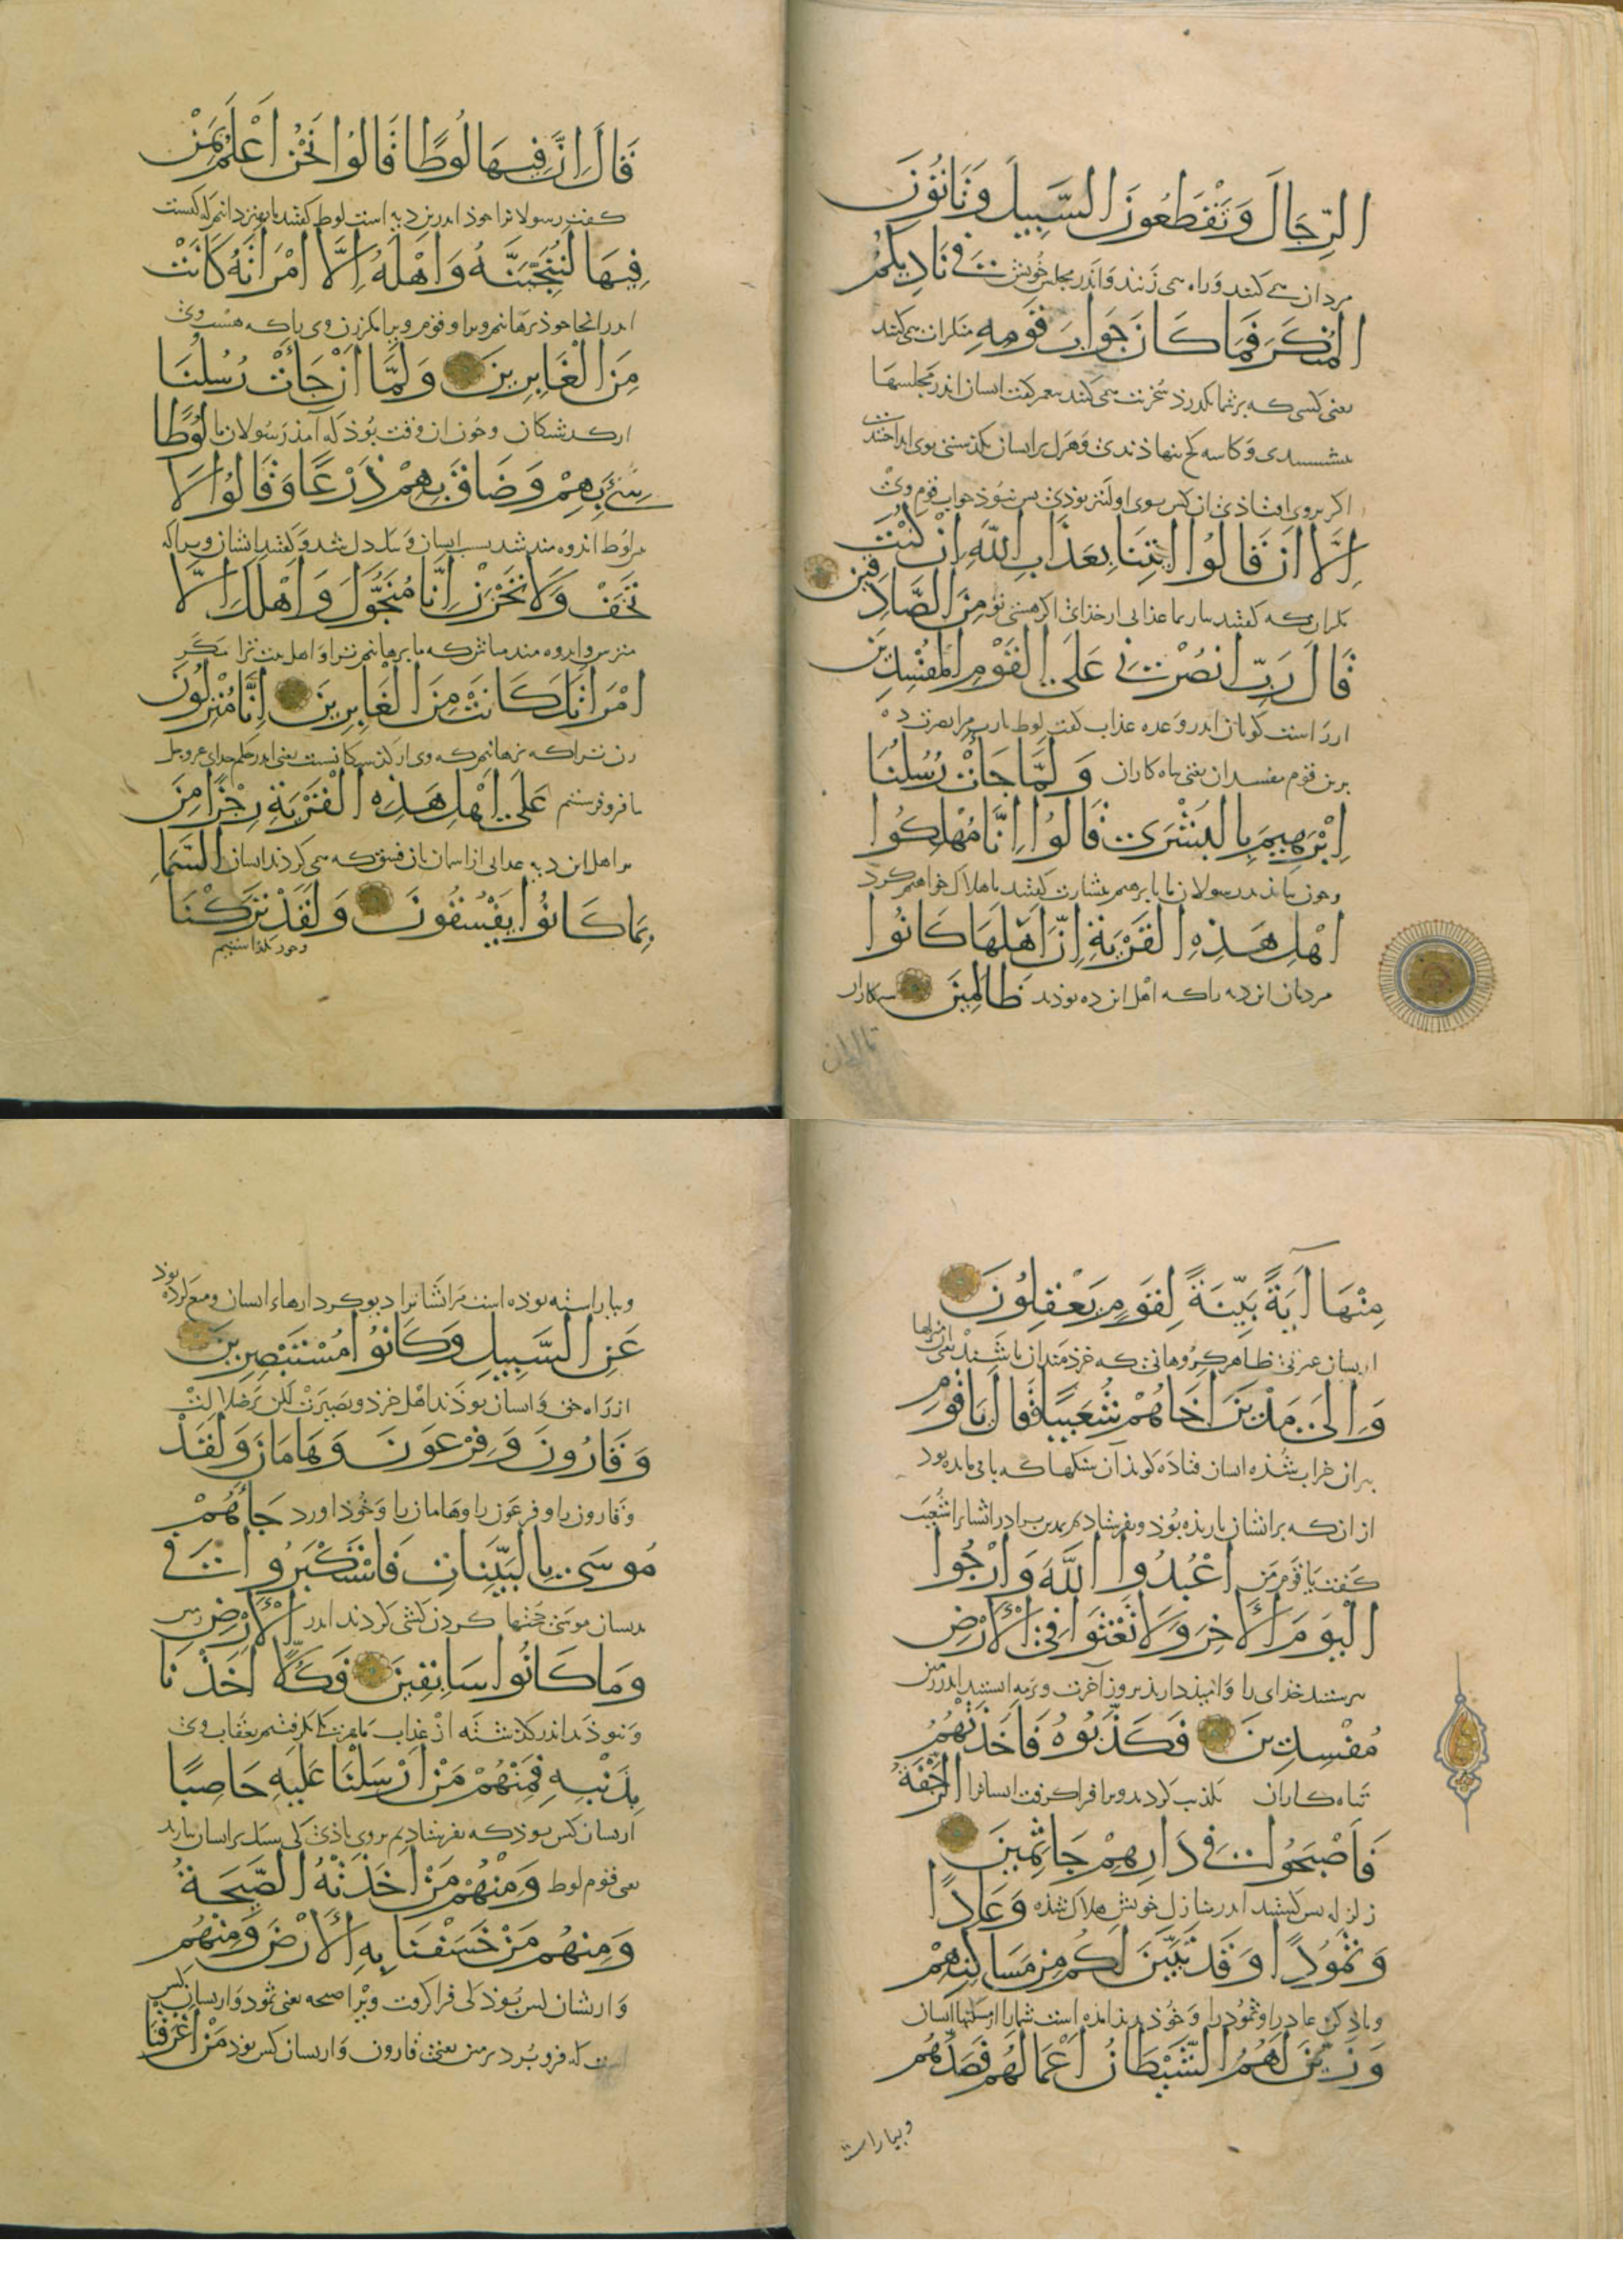 الرِّجَالَ وَتَقْطَعُونَ السَّبِيلَ وَتَأْتُونَ
مردان می کنند و راه می زنند و اندر مجلس خویش فِي نَادِيكُمُ
الْمُنْكَرَ فَمَا كَانَ جَوَابَ قَوْمِهِ منکران می کنند
یعنی کسی که بر شما بگذرد سخریت می کنند اندر مجلسها
و کاسه کج بنهادندی و هرک بر ایشان بگذشتی بوی انداختندی
اگر بروی افتاذی آن کس بوی اولیتر بودی پس نبوذ جواب قوم وی
إِلَّا أَنْ قَالُوا ائْتِنَا بِعَذَابِ اللَّهِ إِنْ كُنْتَ
مگر آن که گفتند بیار بما عذابی از خذای اگر هستی تو مِنَ الصَّادِقِينَ
قَالَ رَبِّ انْصُرْنِي عَلَى الْقَوْمِ الْمُفْسِدِينَ
اندر وعده عذاب گفت لوط یا رب مرا نصرت ده
برین قوم مفسدان یعنی تباه کاران وَلَمَّا جَاءَتْ رُسُلُنَا
إِبْرَهِيمَ بِالْبُشْرَى قَالُوا إِنَّا مُهْلِكُوا
وچون بیامذند رسولان ما بابرهیم ببشارت گفتند ما هلاک خواهیم کرد
أَهْلِ هَذِهِ الْقَرْيَةِ إِنَّ أَهْلَهَا كَانُوا
مردمان این دیه را که اهل این ده بودند ظَالِمِينَ ستمکاران
قَالَ إِنَّ فِيهَا لُوطًا قَالُوا نَحْنُ أَعْلَمُ بِمَنْ
گفت رسولانرا خوذ اندرین دیه است لوط گفتند ما بهتر دانیم که کیست
فِيهَا لَنُنَجِّيَنَّهُ وَأَهْلَهُ إِلَّا امْرَأَتَهُ كَانَتْ
اندر آنجا خوذ برهانیم ویرا و قوم ویرا مگر زن وی را که هست وی
مِنَ الْغَابِرِينَ وَلَمَّا أَنْ جَاءَتْ رُسُلُنَا
وچون آن وقت بوذ که آمذ رسولان ما لُوطًا
سِيءَ بِهِمْ وَضَاقَ بِهِمْ ذَرْعًا وَقَالُوا لَا
مر لوط اندوه مند شد بسبب ایشان و تنگ دل شد و گفتند ایشان ویرا که
تَخَفْ وَلَا تَحْزَنْ إِنَّا مُنَجُّوكَ وَأَهْلَكَ إِلَّا
مترس و اندوه مند مباش که ما برهانیم ترا و اهل بیت ترا مگر
امْرَأَتَكَ كَانَتْ مِنَ الْغَابِرِينَ إِنَّا مُنْزِلُونَ
زن ترا که نرهانیم که وی یعنی اندر حکم خدای عز و جل
ما فرو فرستیم عَلَى أَهْلِ هَذِهِ الْقَرْيَةِ رِجْزًا مِنَ
بر اهل این دیه عذابی از آسمان بآن فسق که می کردند ایشان السَّمَاءِ
بِمَا كَانُوا يَفْسُقُونَ وَلَقَدْ تَرَكْنَا
وخوذ بگذاشتیم
مِنْهَا آيَةً بَيِّنَةً لِقَوْمٍ يَعْقِلُونَ
از ایشان عبرتی ظاهر گروهانی که خرذمندان باشند یعنی منزلها
وَإِلَى مَدْيَنَ أَخَاهُمْ شُعَيْبًا فَقَالَ يَا قَوْمِ
ویران خراب شذه ایشان فتاده که باقی مانده بود
از آن که بر ایشان باریده بوذ وبفرستادیم بمدین برادر ایشانرا شعیب
گفت یا قوم من اعْبُدُوا اللَّهَ وَارْجُوا
الْيَوْمَ الْآخِرَ وَلَا تَعْثَوْا فِي الْأَرْضِ
بپرستید خدای را و امیذ دارید بروز آخرت و اندر زمین
مُفْسِدِينَ فَكَذَّبُوهُ فَأَخَذَتْهُمُ
تباه کاران تکذیب کردند ویرا فرا گرفت ایشانرا الرَّجْفَةُ
فَأَصْبَحُوا فِي دَارِهِمْ جَاثِمِينَ
زلزله پس گشتند اندر منازل خویش هلاک شذه وَعَادًا
وَثَمُودًا وَقَدْ تَبَيَّنَ لَكُمْ مِنْ مَسَاكِنِهِمْ
ویاذ کن عاد را و ثمود را وخوذ پدید آمده است شما را از مسکنها ایشان
وَزَيَّنَ لَهُمُ الشَّيْطَانُ أَعْمَالَهُمْ فَصَدَّهُمْ
وبیاراسته
وبیاراسته بوذه است مر ایشانرا دیو کردارهاء ایشان ومنع کرده بوذ
عَنِ السَّبِيلِ وَكَانُوا مُسْتَبْصِرِينَ
از راه حق و ایشان بوذند اهل خرذ و بصیرت لکن
وَقَارُونَ وَفِرْعَوْنَ وَهَامَانَ وَلَقَدْ
وقارون را و فرعون را و هامان را وخوذ آورد جَاءَهُمْ
مُوسَى بِالْبَيِّنَاتِ فَاسْتَكْبَرُوا فِي
بدیشان موسی حجتها گردن کشی کردند اندر الْأَرْضِ زمین
وَمَا كَانُوا سَابِقِينَ فَكُلًّا أَخَذْنَا
ونبوذند اندر گذشته از عذاب ما بگرفتیم بعقاب وی
بِذَنْبِهِ فَمِنْهُمْ مَنْ أَرْسَلْنَا عَلَيْهِ حَاصِبًا
از یشان کس بوذ که بفرستادیم بروی باذی کی سنگ بر ایشان بارید
یعنی قوم لوط وَمِنْهُمْ مَنْ أَخَذَتْهُ الصَّيْحَةُ
وَمِنْهُمْ مَنْ خَسَفْنَا بِهِ الْأَرْضَ وَمِنْهُمْ
و ازیشان کس بوذ کی فرا گرفت ویرا صیحه یعنی ثمود و ازیشان کس
که فرو برد زمین یعنی قارون و ازیشان کس بوذ مَنْ أَغْرَقْنَا